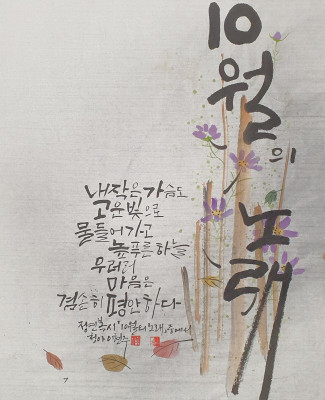 10월의 노래
내 작은 가슴도
고운 빛으로
물들어가고
높푸른 하늘
우러러
마음은
겸손히 평안하다
정연복 시 '10월의 노래' 중에서
7